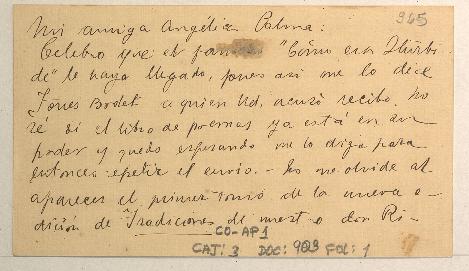 945
Mi amiga Angélica Palma:
Celebro que el famoso "Cómo era Iturbi-
de" le haya llegado, pues así me lo dice
Torres Bodet a quien Ud. acusó recibo. No
sé si el libro de poemas ya está en su
poder y quedo esperando me lo diga para
entonces repetir el envío. - No me olvide al
aparecer el primer tomo de la nueva e-
dición de Tradiciones de nuestro don Ri-
CO-AP1
CAJ: 3 DOC: 903 FOL: 1